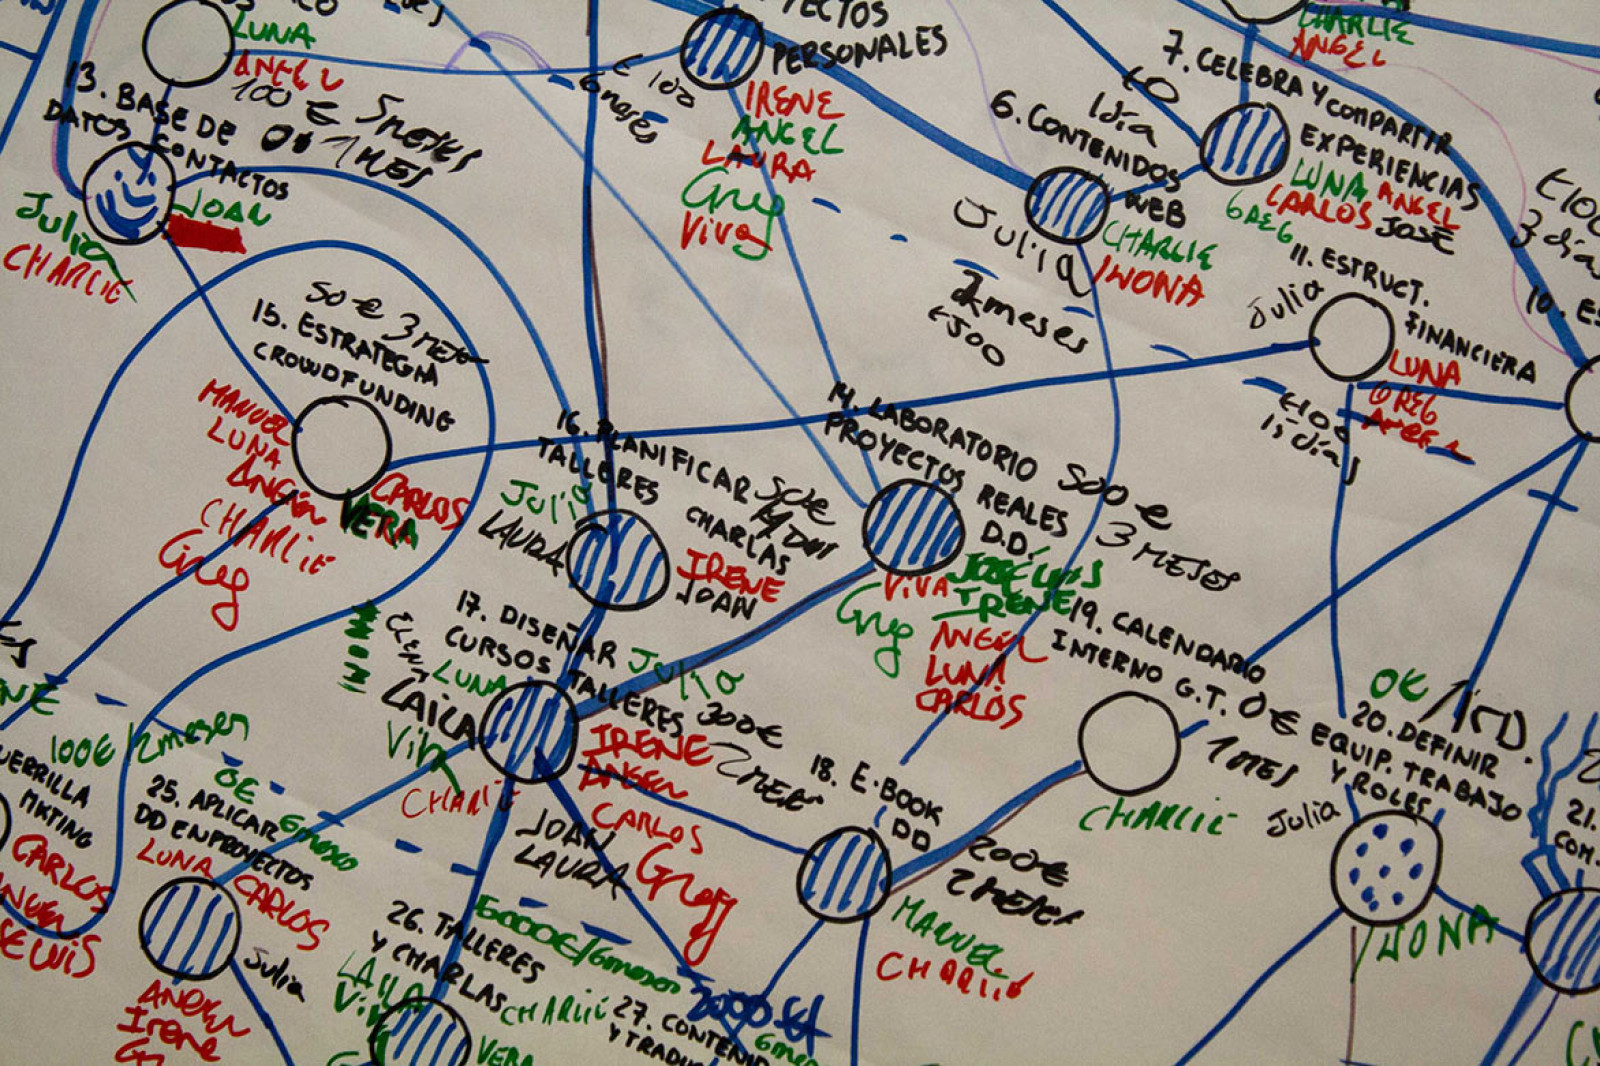 LUNA
ANGEL
100 € 5 MESES
13. BASE DE
DATOS
CONTACTOS
0€ 1 MES
JOAN
Julia
CHARLIE
PERSONALES
€ 100
6 meses
IRENE
ANGEL
LAURA
Greg
Viva
CHARLIE
ANGEL
7. CELEBRA Y COMPARTIR
EXPERIENCIAS
€0
1 día
LUNA ANGEL
GREG CARLOS JOSÉ
6. CONTENIDOS
WEB
Julia
CHARLIE
IWONA
2 meses
€500
€100
3 días
11. ESTRUCT.
FINANCIERA
Julia
LUNA
GREG
€100
15 días
10. ES
50€ 3 MESES
15. ESTRATEGIA
CROWDFUNDING
MANUEL
LUNA
ANGEL
CHARLIE
Greg
CARLOS
VERA
16. PLANIFICAR
TALLERES
CHARLAS
50€
Julia
LAURA
IRENE
JOAN
14. LABORATORIO
PROYECTOS REALES
D.D.
500 €
3 MESES
VIVA JOSÉ LUIS
Greg IRENE
ANGEL
LUNA
CARLOS
17. DISEÑAR
CURSOS
TALLERES
Julia
300€
2 MESES
LUNA
LAILA
CHARLIE
IRENE
ANGEL
CARLOS
Greg
JOAN
LAURA
19. CALENDARIO
INTERNO G.T.
0€
1 MES
CHARLIE
18. E-BOOK
DD
200€
2 MESES
MANUEL
CHARLIE
0€
20. DEFINIR
EQUIP. TRABAJO
Y ROLES
Julia
IWONA
21.
COM.
100€ 2 meses
MKTING
CARLOS
25. APLICAR
DD EN PROYECTOS
0€
6 meses
LUNA CARLOS
Julia
Irene
26. TALLERES
Y CHARLAS
5000€/6 meses
LAILA
CHARLIE
VERA
27. CONTENID
Y TRADU
2000 €